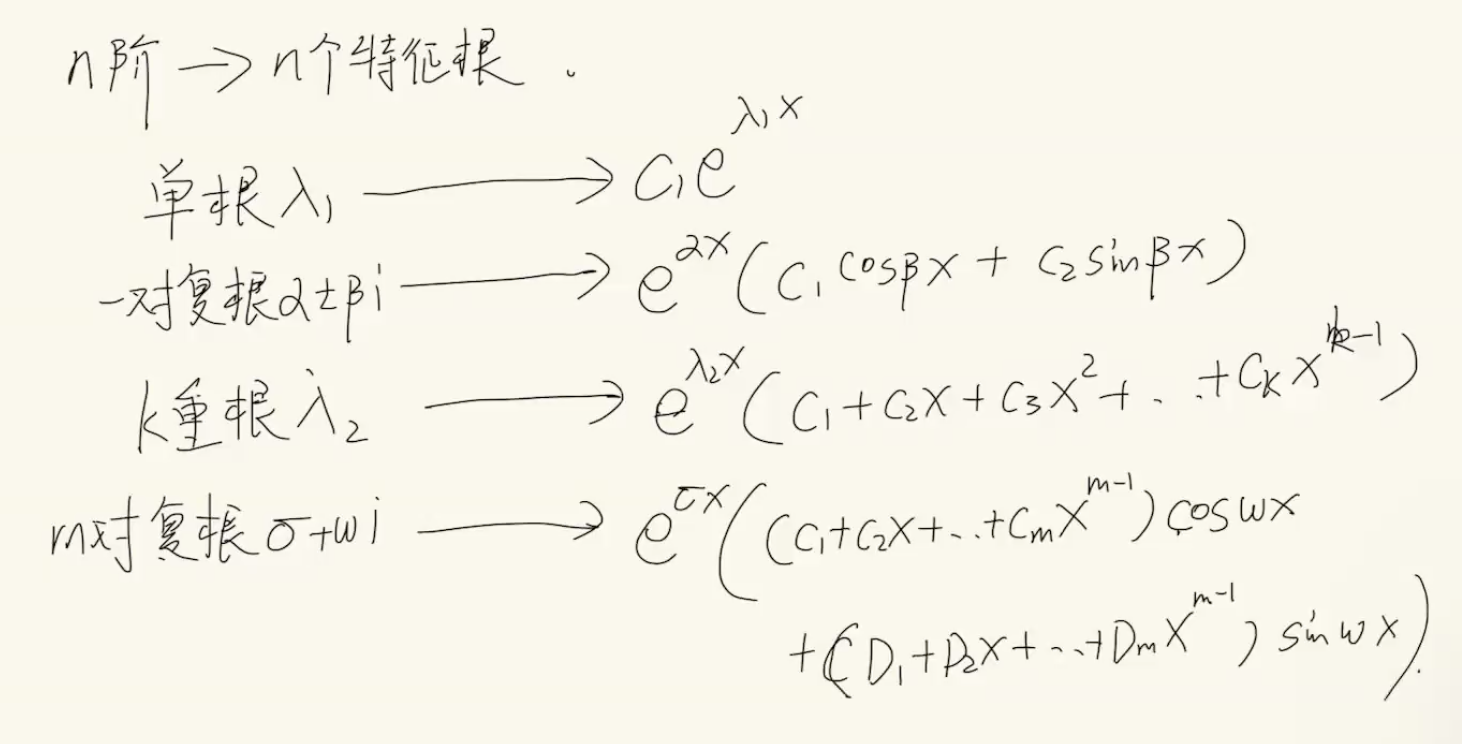 n阶 → n个特征根.
单根λ₁ → C₁e^{λ₁x}
一对复根α±βi → e^{αx}(C₁cosβx + C₂sinβx)
k重根λ₂ → e^{λ₂x}(C₁+C₂x+C₃x²+...+Cₖx^{k-1})
m对复根σ+ωi → e^{σx}((C₁+C₂x+...+Cₘx^{m-1})cosωx
+(D₁+D₂x+...+Dₘx^{m-1})sinωx).